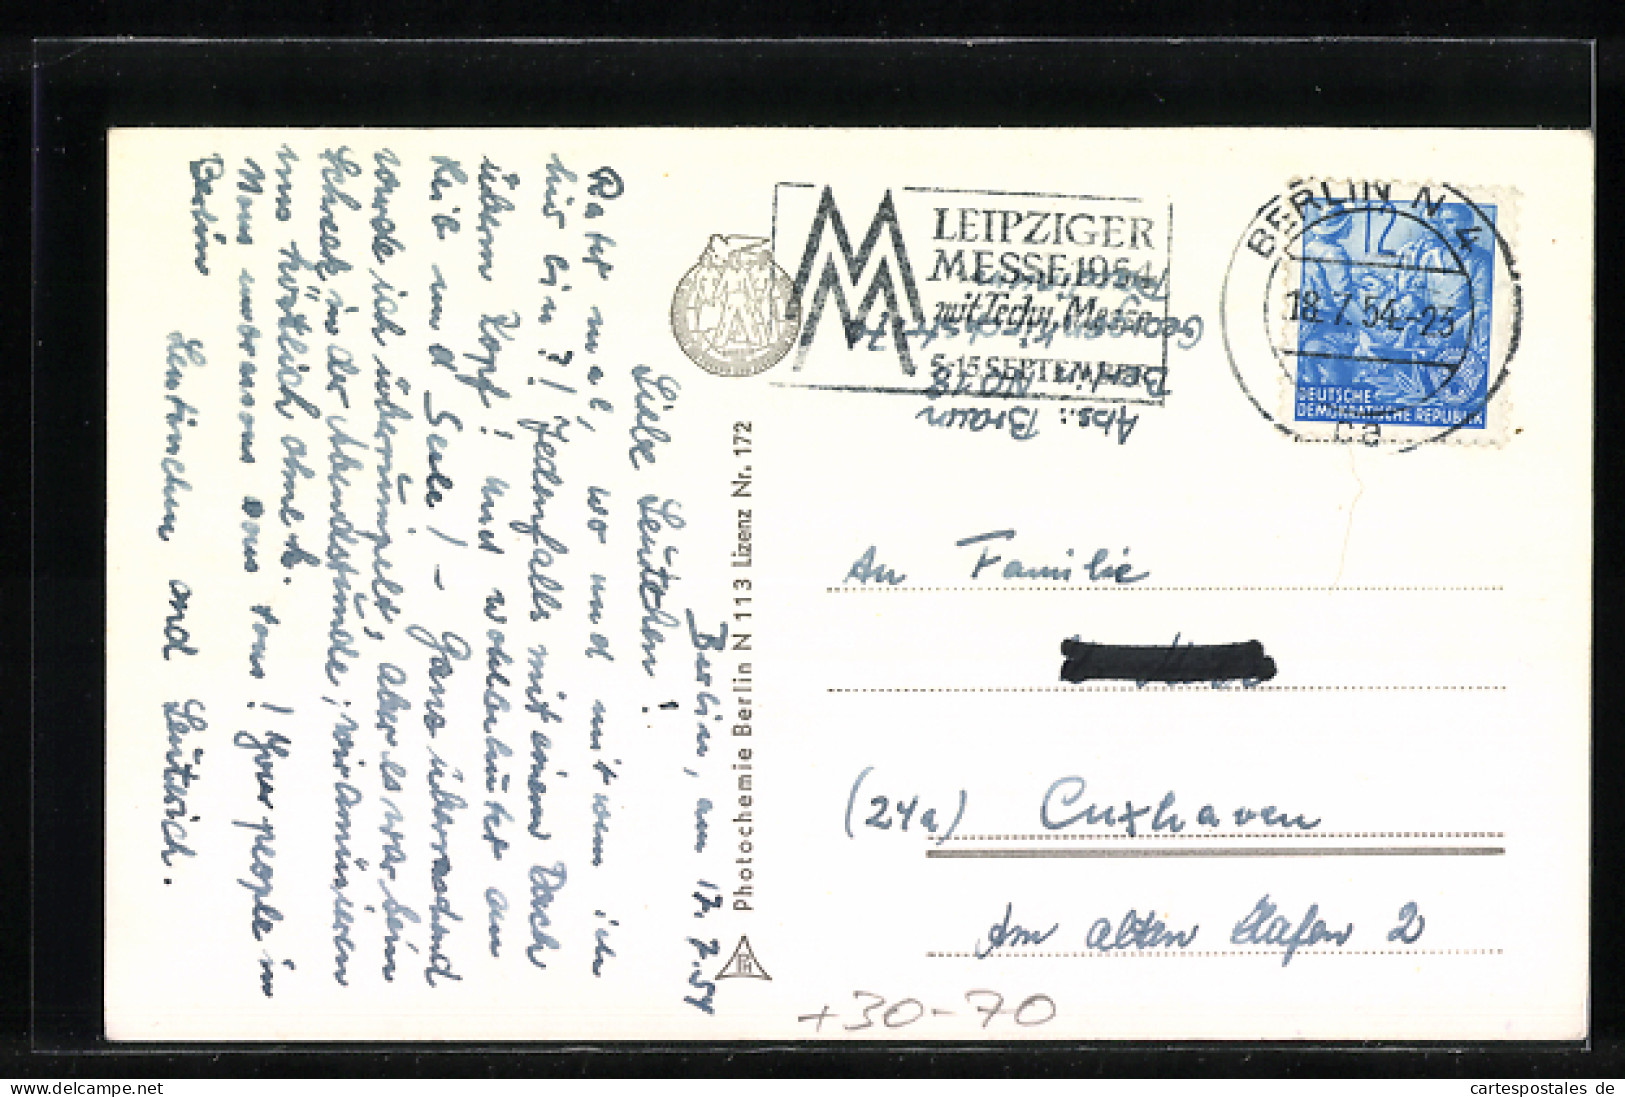 Berlin, am 17.7.54
Liebe Leutchen!
Ratet mal, wo und mit wem ich
hier bin?! Jedenfalls mit einem Dach
überm Kopf! Und wohlbehütet an
Leib und Seele! – Ganz überraschend
wurde ich überrumpelt, aber es war kein
Schreck in der Abendstunde; wir amüsieren
uns tröstlich ohne
Your people in
Berlin
und
Photochemie Berlin N 113 Lizenz Nr. 172
LEIPZIGER
MESSE 1954
mit Techn. Messe
5.-15. SEPTEMBER
Abs.: Braun
Berlin NO 18
Georgenkirchstr.
BERLIN N 4
12
18.7.54.-23
DEUTSCHE
DEMOKRATISCHE REPUBLIK
An Familie
(24a) Cuxhaven
Am alten Hafen 2
+30-70
delcampe.net
cartespostales de